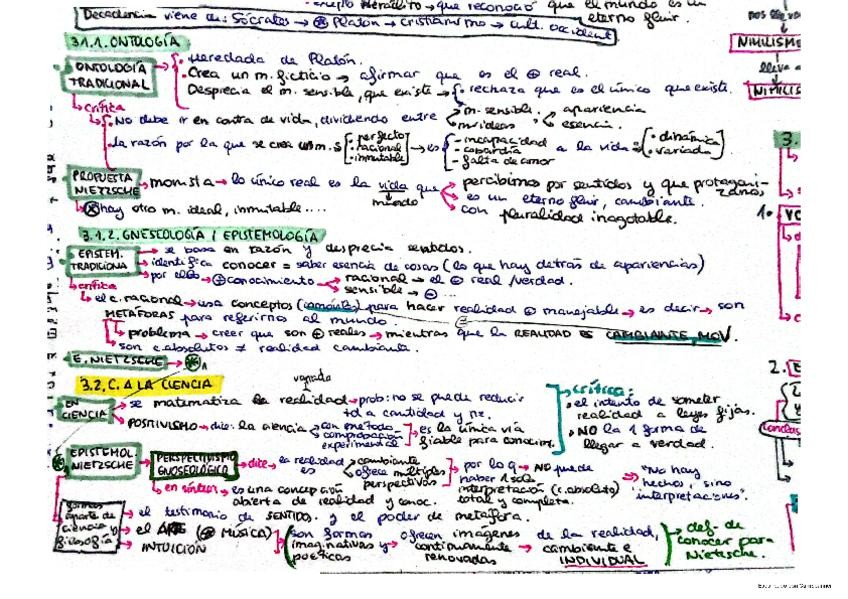 Heráclito → que reconoció que el mundo es un
Decadencia viene de: Sócrates → Platón → cristianismo → cult. occident
eterno fluir.
3.1.1. ONTOLOGÍA
ONTOLOGÍA TRADICIONAL
Heredada de Platón.
Crea un m. ficticio → afirmar que es el ⊕ real.
Desprecia el m. sensible, que existe → rechaza que es el único que existe.
crítica
No debe ir en contra de vida, dividendo entre m. sensible: apariencia
m. ideas: esencia.
la razón por la que se crea un m. s perfecto racional inmutable → es - incapacidad - cobardía - falta de amor a la vida s dinámica variada
PROPUESTA NIETZSCHE → monista → lo único real es la vida que percibimos por sentidos y que protagonizamos
mundo
es un eterno fluir, cambiante.
con pluralidad inagotable.
hay otro m. ideal, inmutable....
3.1.2. GNOSEOLOGÍA / EPISTEMOLOGÍA
EPISTEM. TRADICIONA
se basa en razón y desprecia sentidos.
identifica conocer = saber esencia de cosas (lo que hay detrás de apariencias)
por ello → ⊕ conocimiento → racional → el ⊕ real /verdad.
sensible → ⊖ ...
crítica
el c. racional → usa conceptos para hacer realidad ⊕ manejable → es decir → son
METÁFORAS para referirnos al mundo.
problema → creer que son ⊕ reales → mientras que la REALIDAD ES CAMBIANTE, MOV.
son c. absolutos ≠ realidad cambiante.
E. NIETZSCHE →
3.2. C. A LA CIENCIA
variada
EN CIENCIA
se matematiza la realidad → prob: no se puede reducir
td a cantidad y nº.
POSITIVISMO → dice: la ciencia → con método comprobación experimental → es la única vía fiable para conocim.
crítica:
el intento de someter
realidad a leyes fijas.
NO la 1 forma de
llegar a verdad.
EPISTEMOL. NIETZSCHE
PERSPECTIVISMO GNOSEOLÓGICO → dice → la realidad es cambiante
ofrece múltiples perspectivas
por lo q → NO puede
haber 1 sola
interpretación (c. absoluto)
total y completa.
"No hay
hechos, sino
interpretaciones".
en síntesis → es una concepción
abierta de realidad y conoc.
formas aparte de ciencia y filosofía
el testimonio de SENTIDOS y el poder de metáfora.
el ARTE (⊕ MÚSICA)
INTUICIÓN
son formas
imaginativas y
poéticas
ofrecen imágenes de la realidad,
continuamente → cambiante e
renovadas INDIVIDUAL
def. de
conocer para
Nietzsche.
NIHILISMO
lleva a
3.
1.
2.